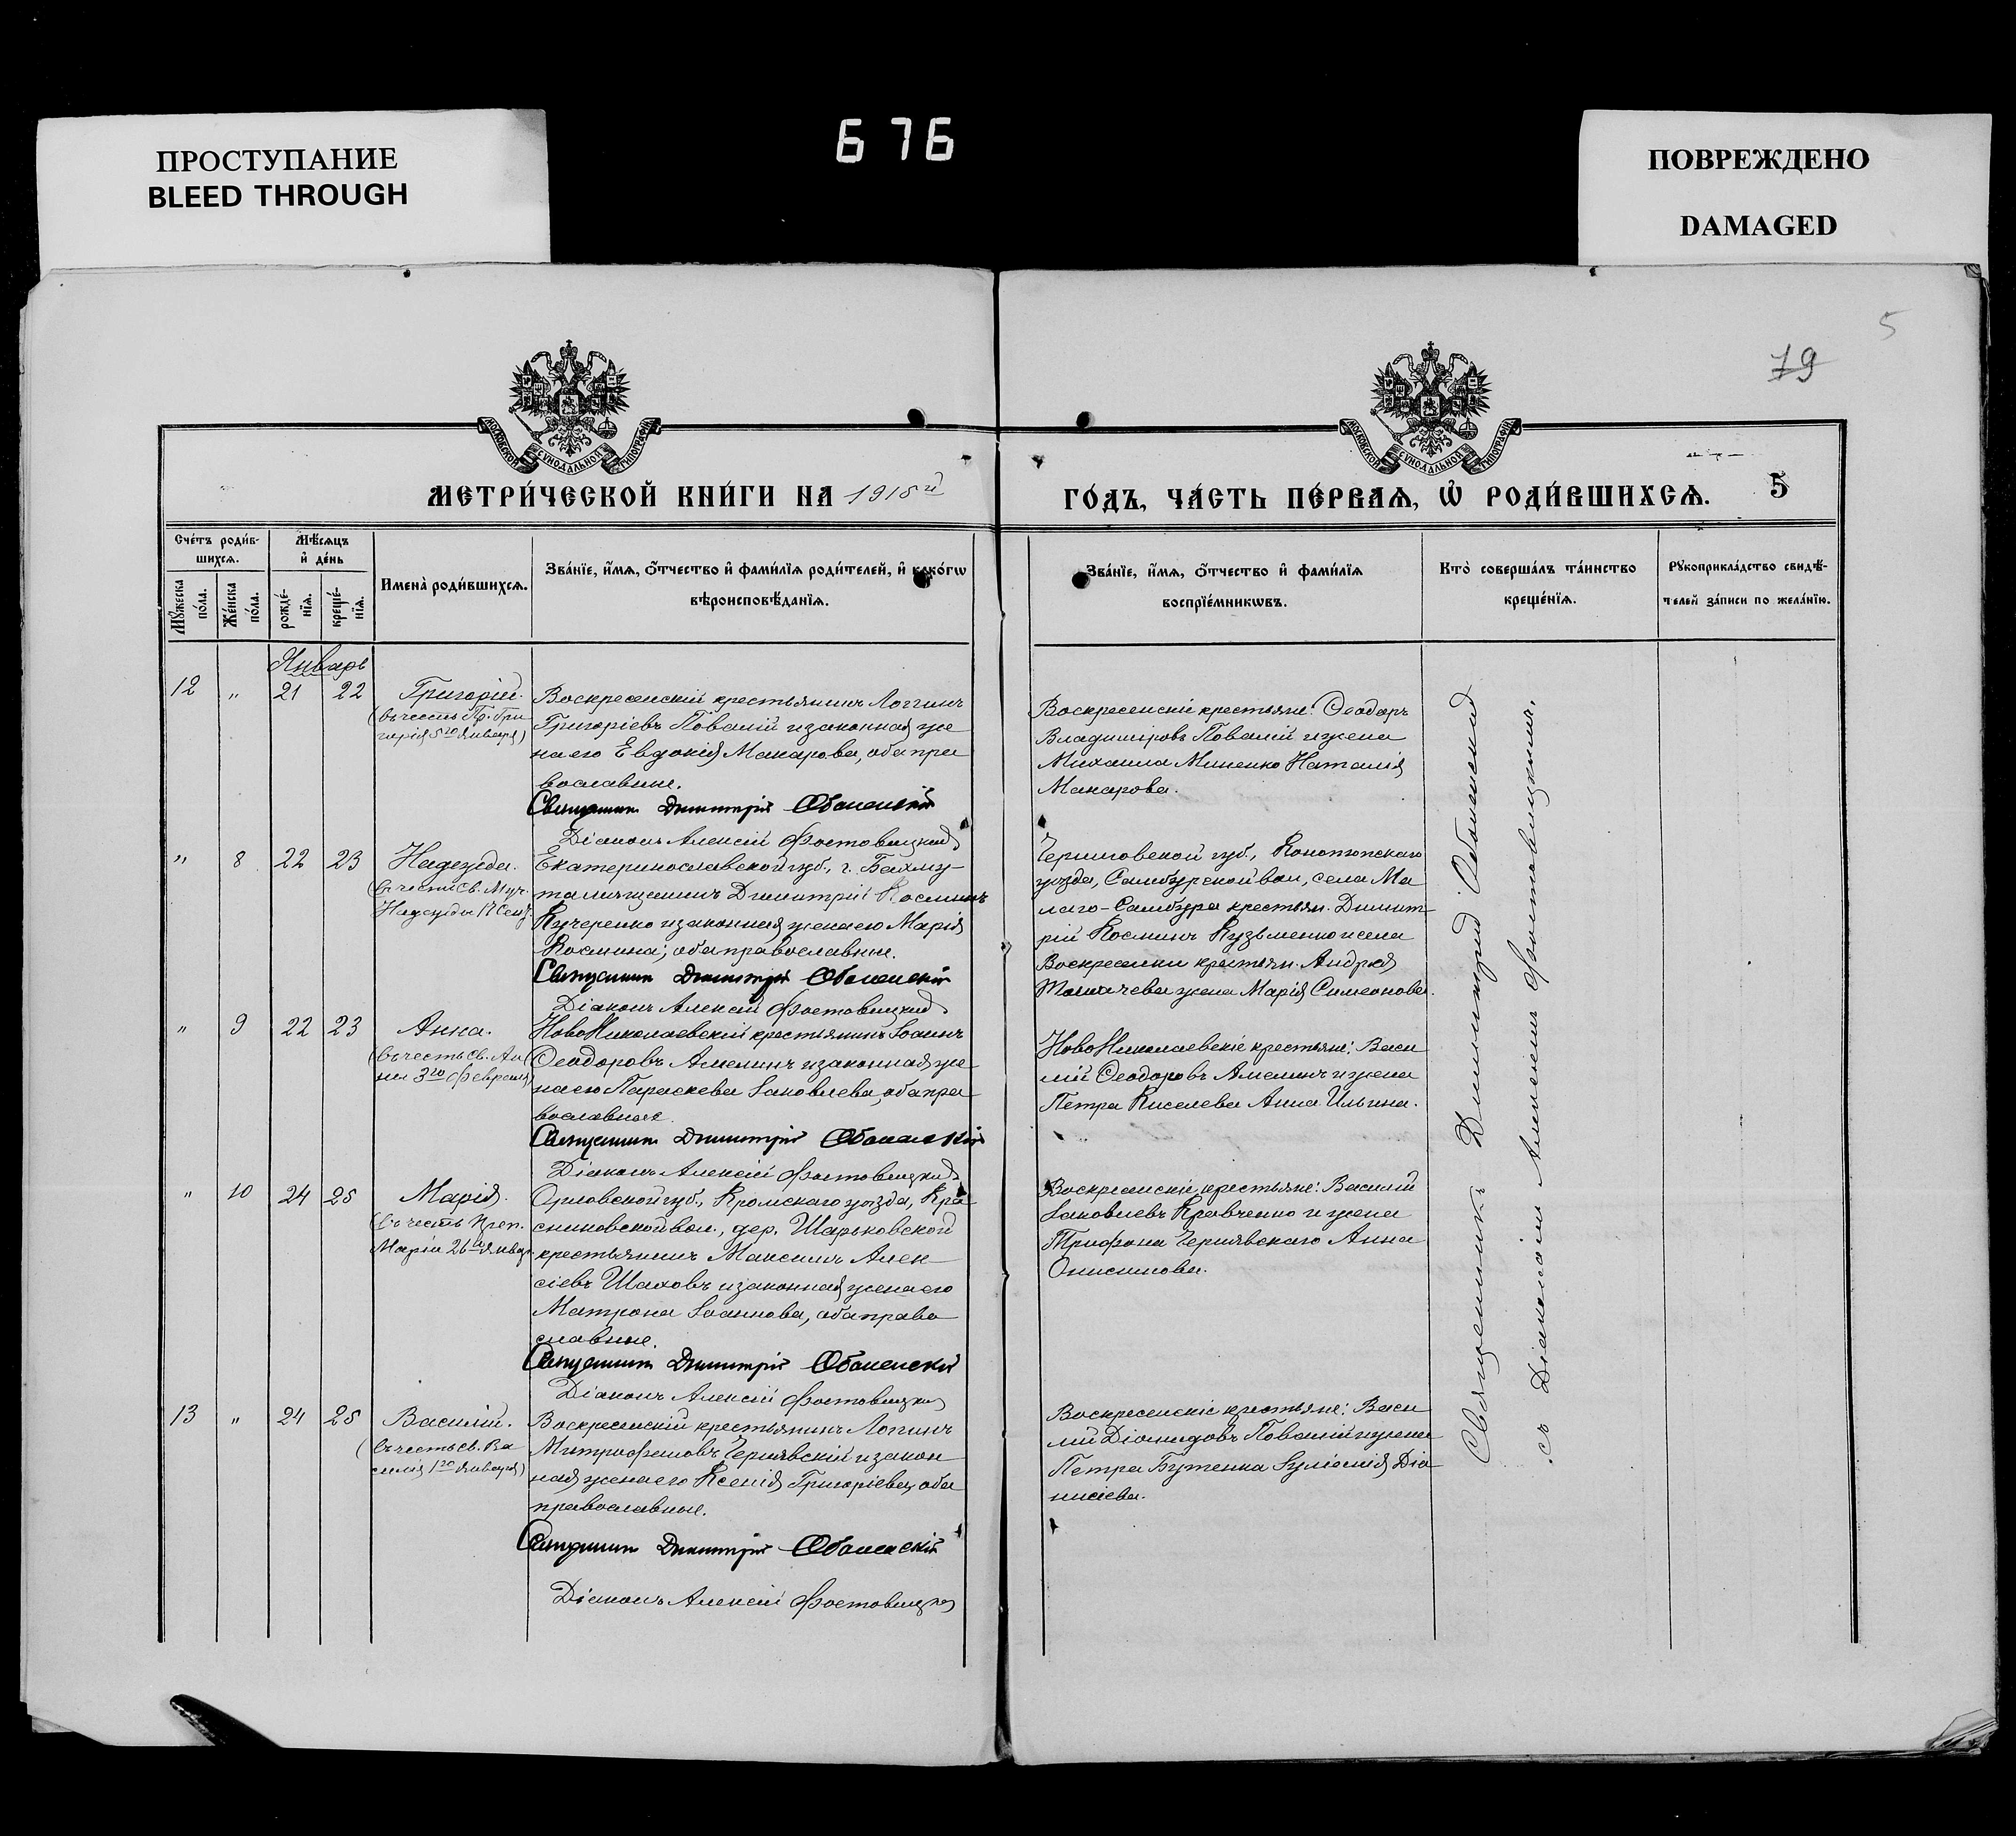 676
ПРОСТУПАНИЕ
BLEED THROUGH
ПОВРЕЖДЕНО
DAMAGED
5
79
МОСКОВСКОЙ СѴНОДАЛЬНОЙ ТИПОГРАФІИ
МОСКОВСКОЙ СѴНОДАЛЬНОЙ ТИПОГРАФІИ
МЕТРИ́ЧЕСКОЙ КНИ́ГИ НА 1915й
ГО́ДЪ, ЧА́СТЬ ПЕ́РВАѦ, Ѡ҆ РОДИ́ВШИХСѦ. 5
Сче́тъ роди́в-
шихсѧ.
Мꙋ́жеска по́ла.
Же́нска по́ла.
Мѣ́сѧцъ
и҆ де́нь
рожде́-
нїѧ.
креще́-
нїѧ.
Имена̀ роди́вшихсѧ.
Зва́нїе, и҆́мѧ, ѻ҆́тчество и҆ фами́лїѧ роди́телей, и҆ како́гѡ
вѣроисповѣ́данїѧ.
Зва́нїе, и҆́мѧ, ѻ҆́тчество и҆ фами́лїѧ
воспрїе́мникѡвъ.
Кто̀ соверша́лъ та́инство
креще́нїѧ.
Рꙋкоприкла́дство свидѣ́-
телей за́писи по жела́нїю.
Январь
12 " 21 22 Григорій.
(въ честь Пр. Гри
горія 5го Января)
Воскресенскій крестьянинъ Логгинъ
Григоріевъ Повалій и законная же
на его Евдокія Макарова, оба пра
вославные.
Священникъ Димитрій Оболенскій
Діаконъ Алексій Фостовицкій
Воскресенскіе крестьяне: Ѳеодоръ
Владиміровъ Повалій и жена
Михаила Миненко Наталія
Макарова.
" 8 22 23 Надежда.
(въ честь св. Муч.
Надежды 17 Сен.)
Екатеринославской губ., г. Бахму-
та мѣщанинъ Димитрій Косминъ
Кучеренко и законная жена его Марія
Космина; оба православные.
Священникъ Димитрій Оболенскій
Діаконъ Алексій Фостовицкій
Черниговской губ., Конотопскаго
уѣзда, Самбурской вол., села Ма
лаго-Самбура крестьян. Димит
рій Косминъ Кузьменко и села
Воскресенки крестьян. Андрея
Толмачева жена Марія Симеонова.
" 9 22 23 Анна.
(въ честь св. Ан
ны 3го Февраля)
НовоНиколаевскій крестьянинъ Іоаннъ
Ѳеодоровъ Амелинъ и законная же
на его Параскева Іаковлева, оба пра
вославные
Священникъ Димитрій Оболенскій
Діаконъ Алексій Фостовицкій
НовоНиколаевскіе крестьяне: Васи
лій Ѳеодоровъ Амелинъ и жена
Петра Киселева Анна Ильина.
" 10 24 25 Марія.
(въ честь Преп.
Маріи 26го Январ.
Орловской губ., Кромскаго уѣзда, Кра
сниковской вол., дер. Шарьковской
крестьянинъ Максимъ Алек
сіевъ Шаховъ и законная жена его
Матрона Іоаннова, оба право
славные.
Священникъ Димитрій Оболенскій
Діаконъ Алексій Фостовицкій
Воскресенскіе крестьяне: Василій
Іаковлевъ Кравченко и жена
Трифона Чернявскаго Анна
Онисимова.
13 " 24 25 Василій.
(въ честь св. Ва
силія 1го Января)
Воскресенскій крестьянинъ Логинъ
Митрофановъ Чернявскій и закон
ная жена его Ксенія Григоріева, оба
православные.
Священникъ Димитрій Оболенскій
Діаконъ Алексій Фостовицкій
Воскресенскіе крестьяне: Васи
лій Діомидовъ Повалій и жена
Петра Бутенка Іуліанія Діо
нисіева.
Священникъ Димитрій Оболенскій
съ Діакономъ Алексіемъ Фостовицкимъ.